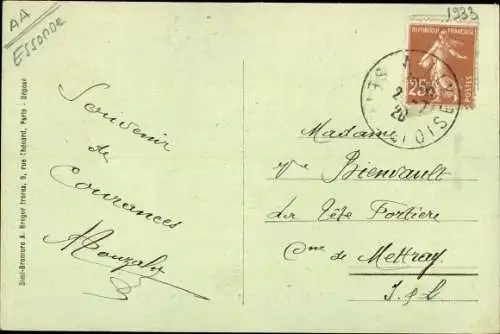 AA
Essonne
1933
RÉPUBLIQUE FRANÇAISE
25c
POSTES
OISE
Souvenir
de
Courances
Madame
Vve Bienvault
La Tête Fortière
Cne de Mettray
I. & L
Simi-Bromure A. Breger frères, 9, rue Thénard, Paris - Déposé